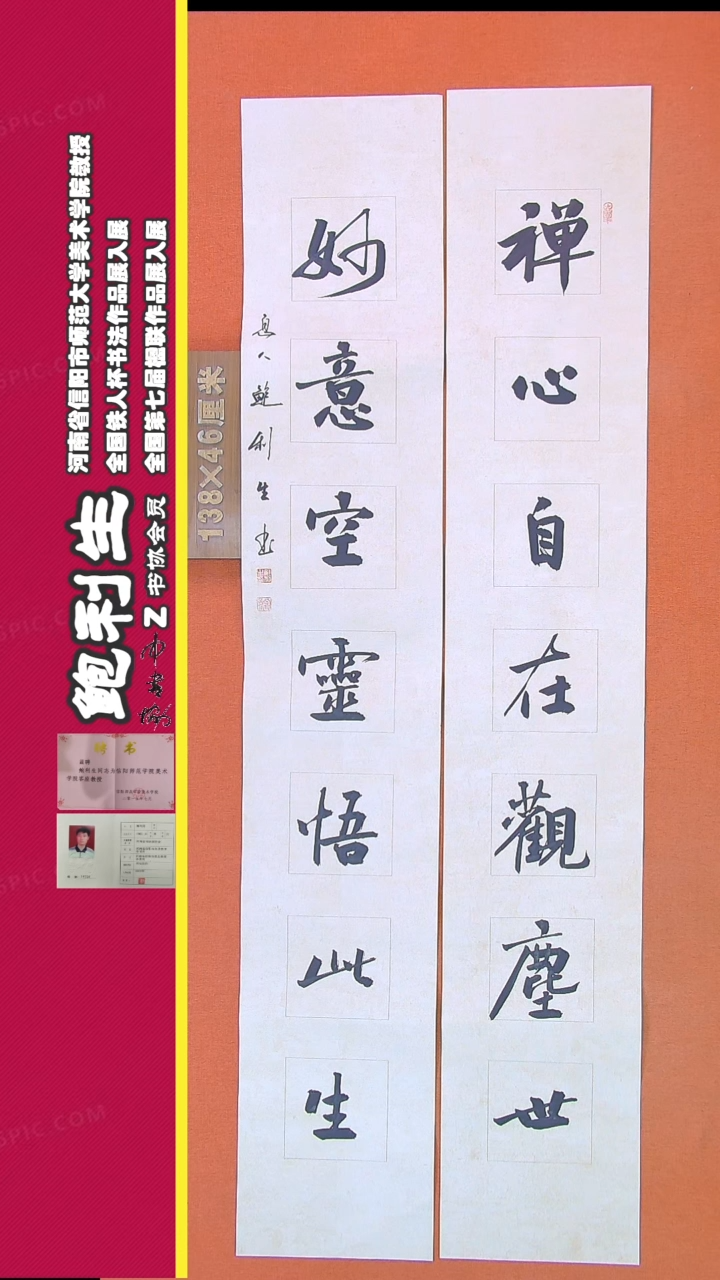 禅心自在觀塵世
妙意空靈悟此生
鮑利生
138×46厘米
河南省信阳市师范大学美术学院教授
全国铁人杯书法作品展入展
全国第七届楹联作品展入展
鲍利生
书协会员
聘书